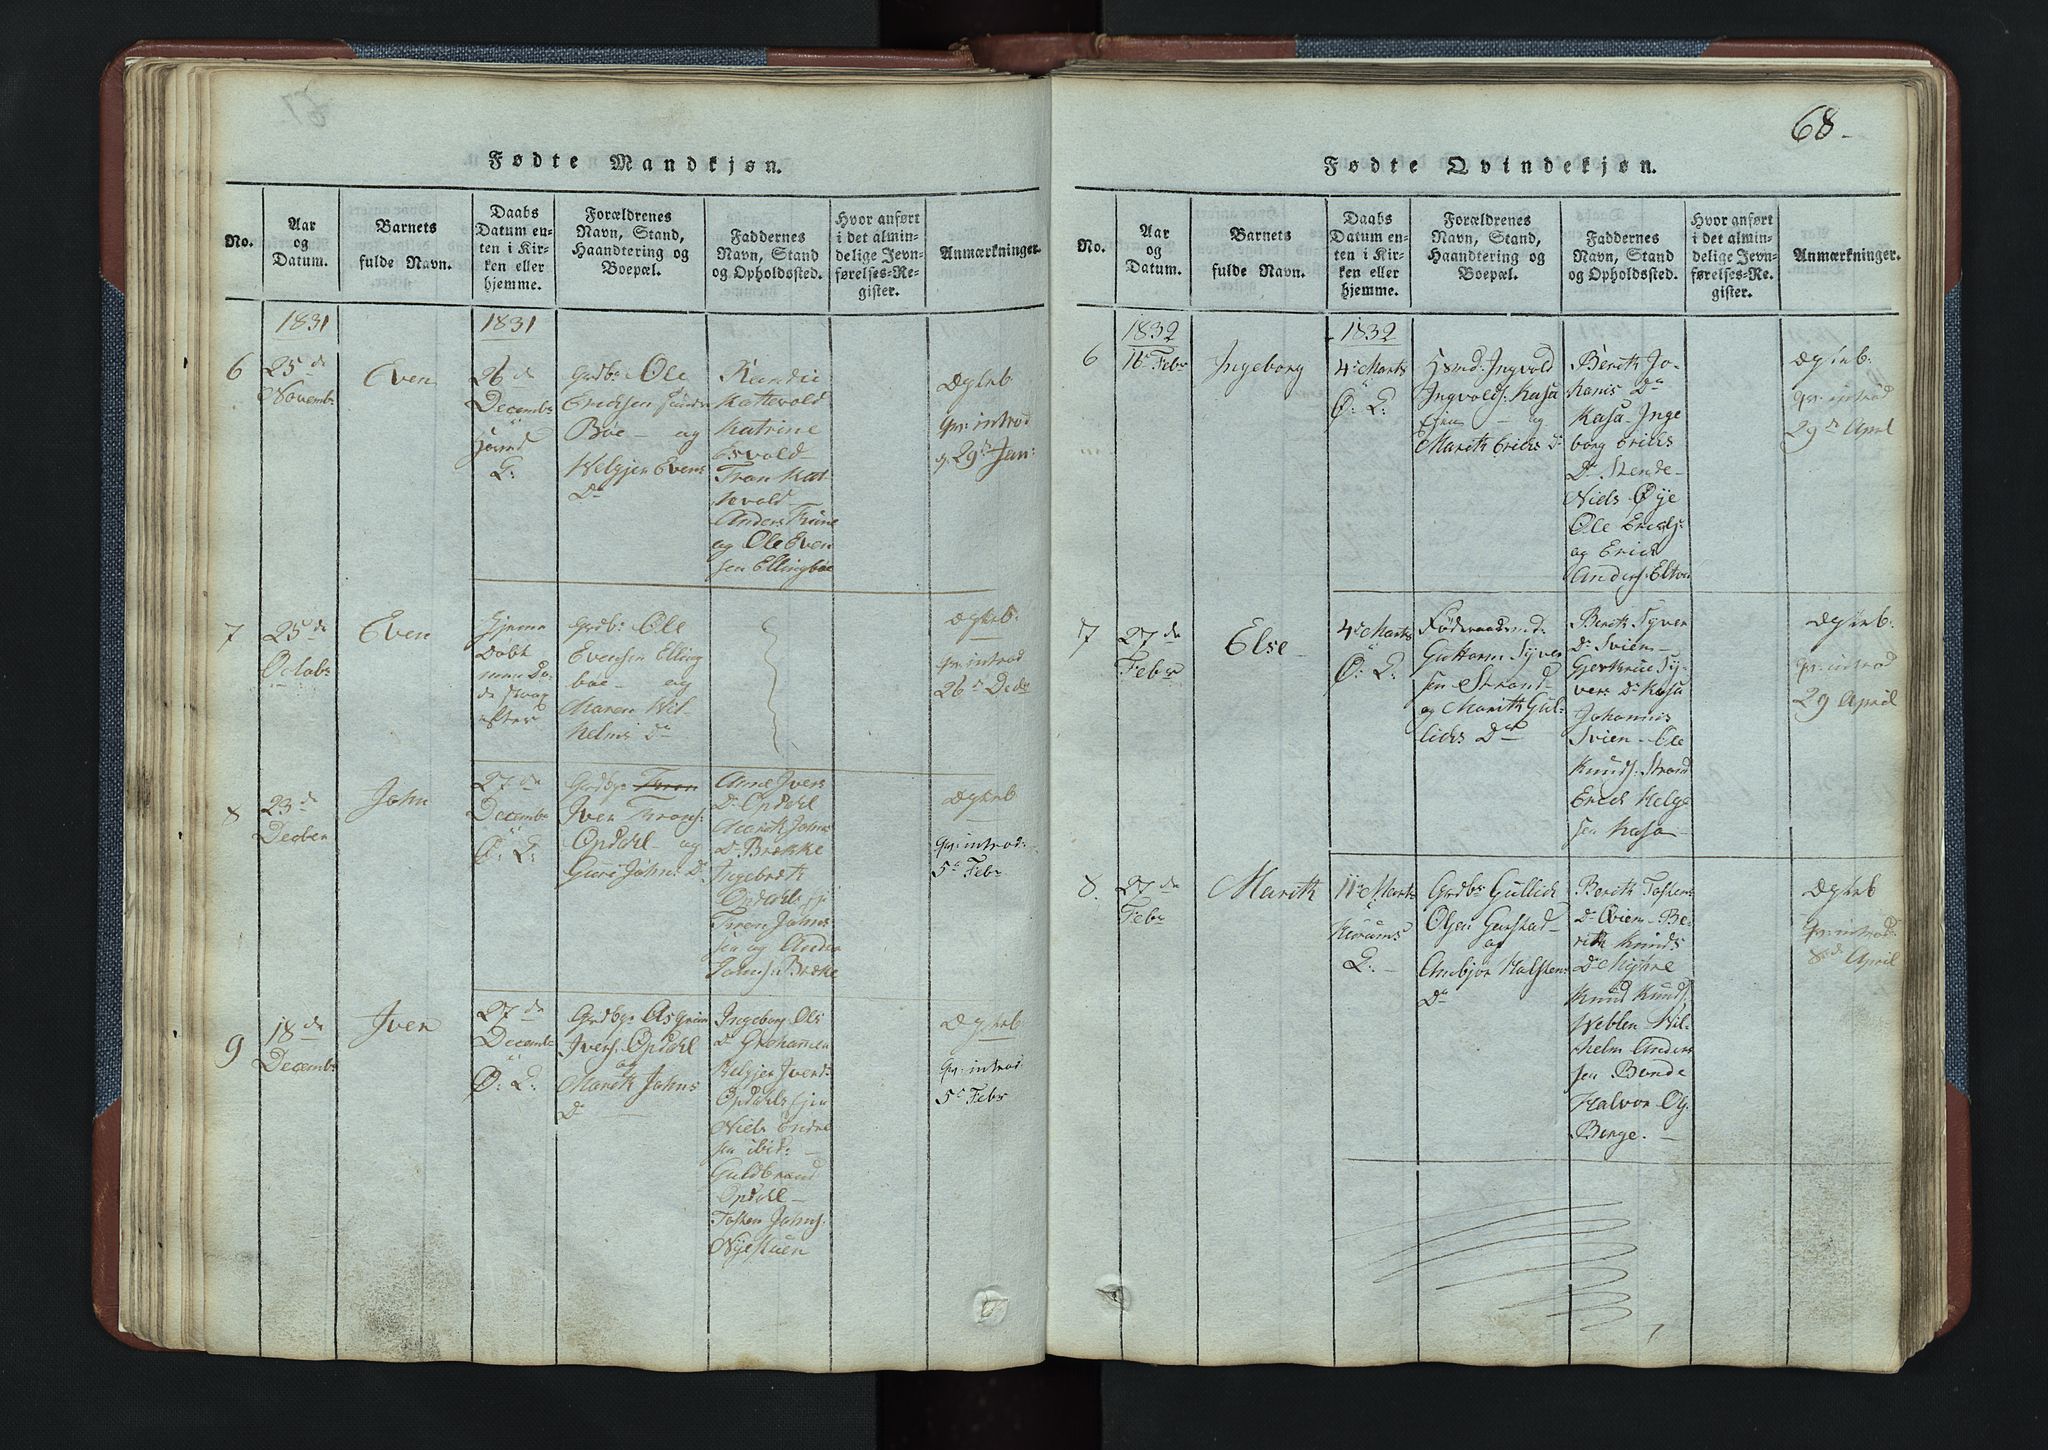 Fødte Mandkjøn.
No.
Aar
og
Datum.
Barnets
fulde Navn.
Daabs
Datum en-
ten i Kir-
ken eller
hjemme.
Forældrenes
Navn, Stand,
Haandtering og
Boepæl.
Faddernes
Navn, Stand
og Opholdssted.
Hvor anført
i det almin-
delige Jevn-
førelses-Re-
gister.
Anmærkninger.
1831
1831
6
25de
Novembr
Even
26de
Decembr
G:
Grdbr Ole
Ericksen
Bøe - og
Welgjer Evens
Dr
Kattevold
Katrine
Tron Kat
tevold
Anders
og Ole Even
sen Ellingbøe
qv: introd
29d Jan:
7
25de
Octobr
Even
Hjemme
Døbt
efter
Grdbr Ole
Evensen Elling
bøe - og
Maren Wil-
helms Dr
qv: introd
26de Decbr
8
23de
Decber
John
27de
Decembr
Ø: L:
Grdbr Tron
Iver Trons:
Opdahl - og
Guri Johns Dr
Anne Ivers
Dr Opdahl
Marith Johns
Dr Brække
Ingebreth
Opdahls eje
Tron Johns
sen og Anders
Johns: Bræke
qv: introd:
5te Febr
9
18de
Decembr
Iver
27de
Decembr
Ø: L:
Grdbr Asgrim
Ivers: Opdahl
og
Marith Johns
Dr
Ingeborg Ols
Dr
Opdahls ejen
Niels Endre
sen ibid: -
Guldbrand
Opdahl -
Tosten Johns:
Nyestuen
qv: introd:
5te Febr
68
Fødte Qvindekjøn.
No.
Aar
og
Datum.
Barnets
fulde Navn.
Daabs
Datum en-
ten i Kir-
ken eller
hjemme.
Forældrenes
Navn, Stand,
Haandtering og
Boepæl.
Faddernes
Navn, Stand
og Opholdssted.
Hvor anført
i det almin-
delige Jevn-
førelses-Re-
gister.
Anmærkninger.
1832
1832
6
Febr
Ingeborg
4de Marts
Ø: L:
Hsmd: Ingvold
Ingvolds: Kasa
Ejen - og
Marith Ericks Dr
Berith Jo-
hanis Dr
Kasa Inge
borg Ericks
Dr Stende-
Niels Øye
Ole Ericks:
og Erick
Anders: Eltun
qv: introd
29de April
7
27de
Febr
Else
4de Marts
Ø: L:
Føderaadsmd:
Guttorm Syver
sen Strand
og Marith Gul-
licks Dtr
Berith Syver
Dr Svien -
Gjertrue Sy-
vers Dr Kasa
Johannis
Svien - Ole
Knuds: Strand
Erick Helge
sen Kasa -
qv: introd
29 April
8.
27de
Febr
Marith
11te Marts
Hurums
L: -
Grdbr Gullick
Olsen Garstad
og
Anbjør Halstens
Dr
Berith Tostens
Dr Qvien - Be-
rith Knuds
Dr Myhre
Knud Knuds:
Weblen Wil-
helm Anders
sen Bende
Halvor Ols:
Berge. -
qv: introd:
8de April